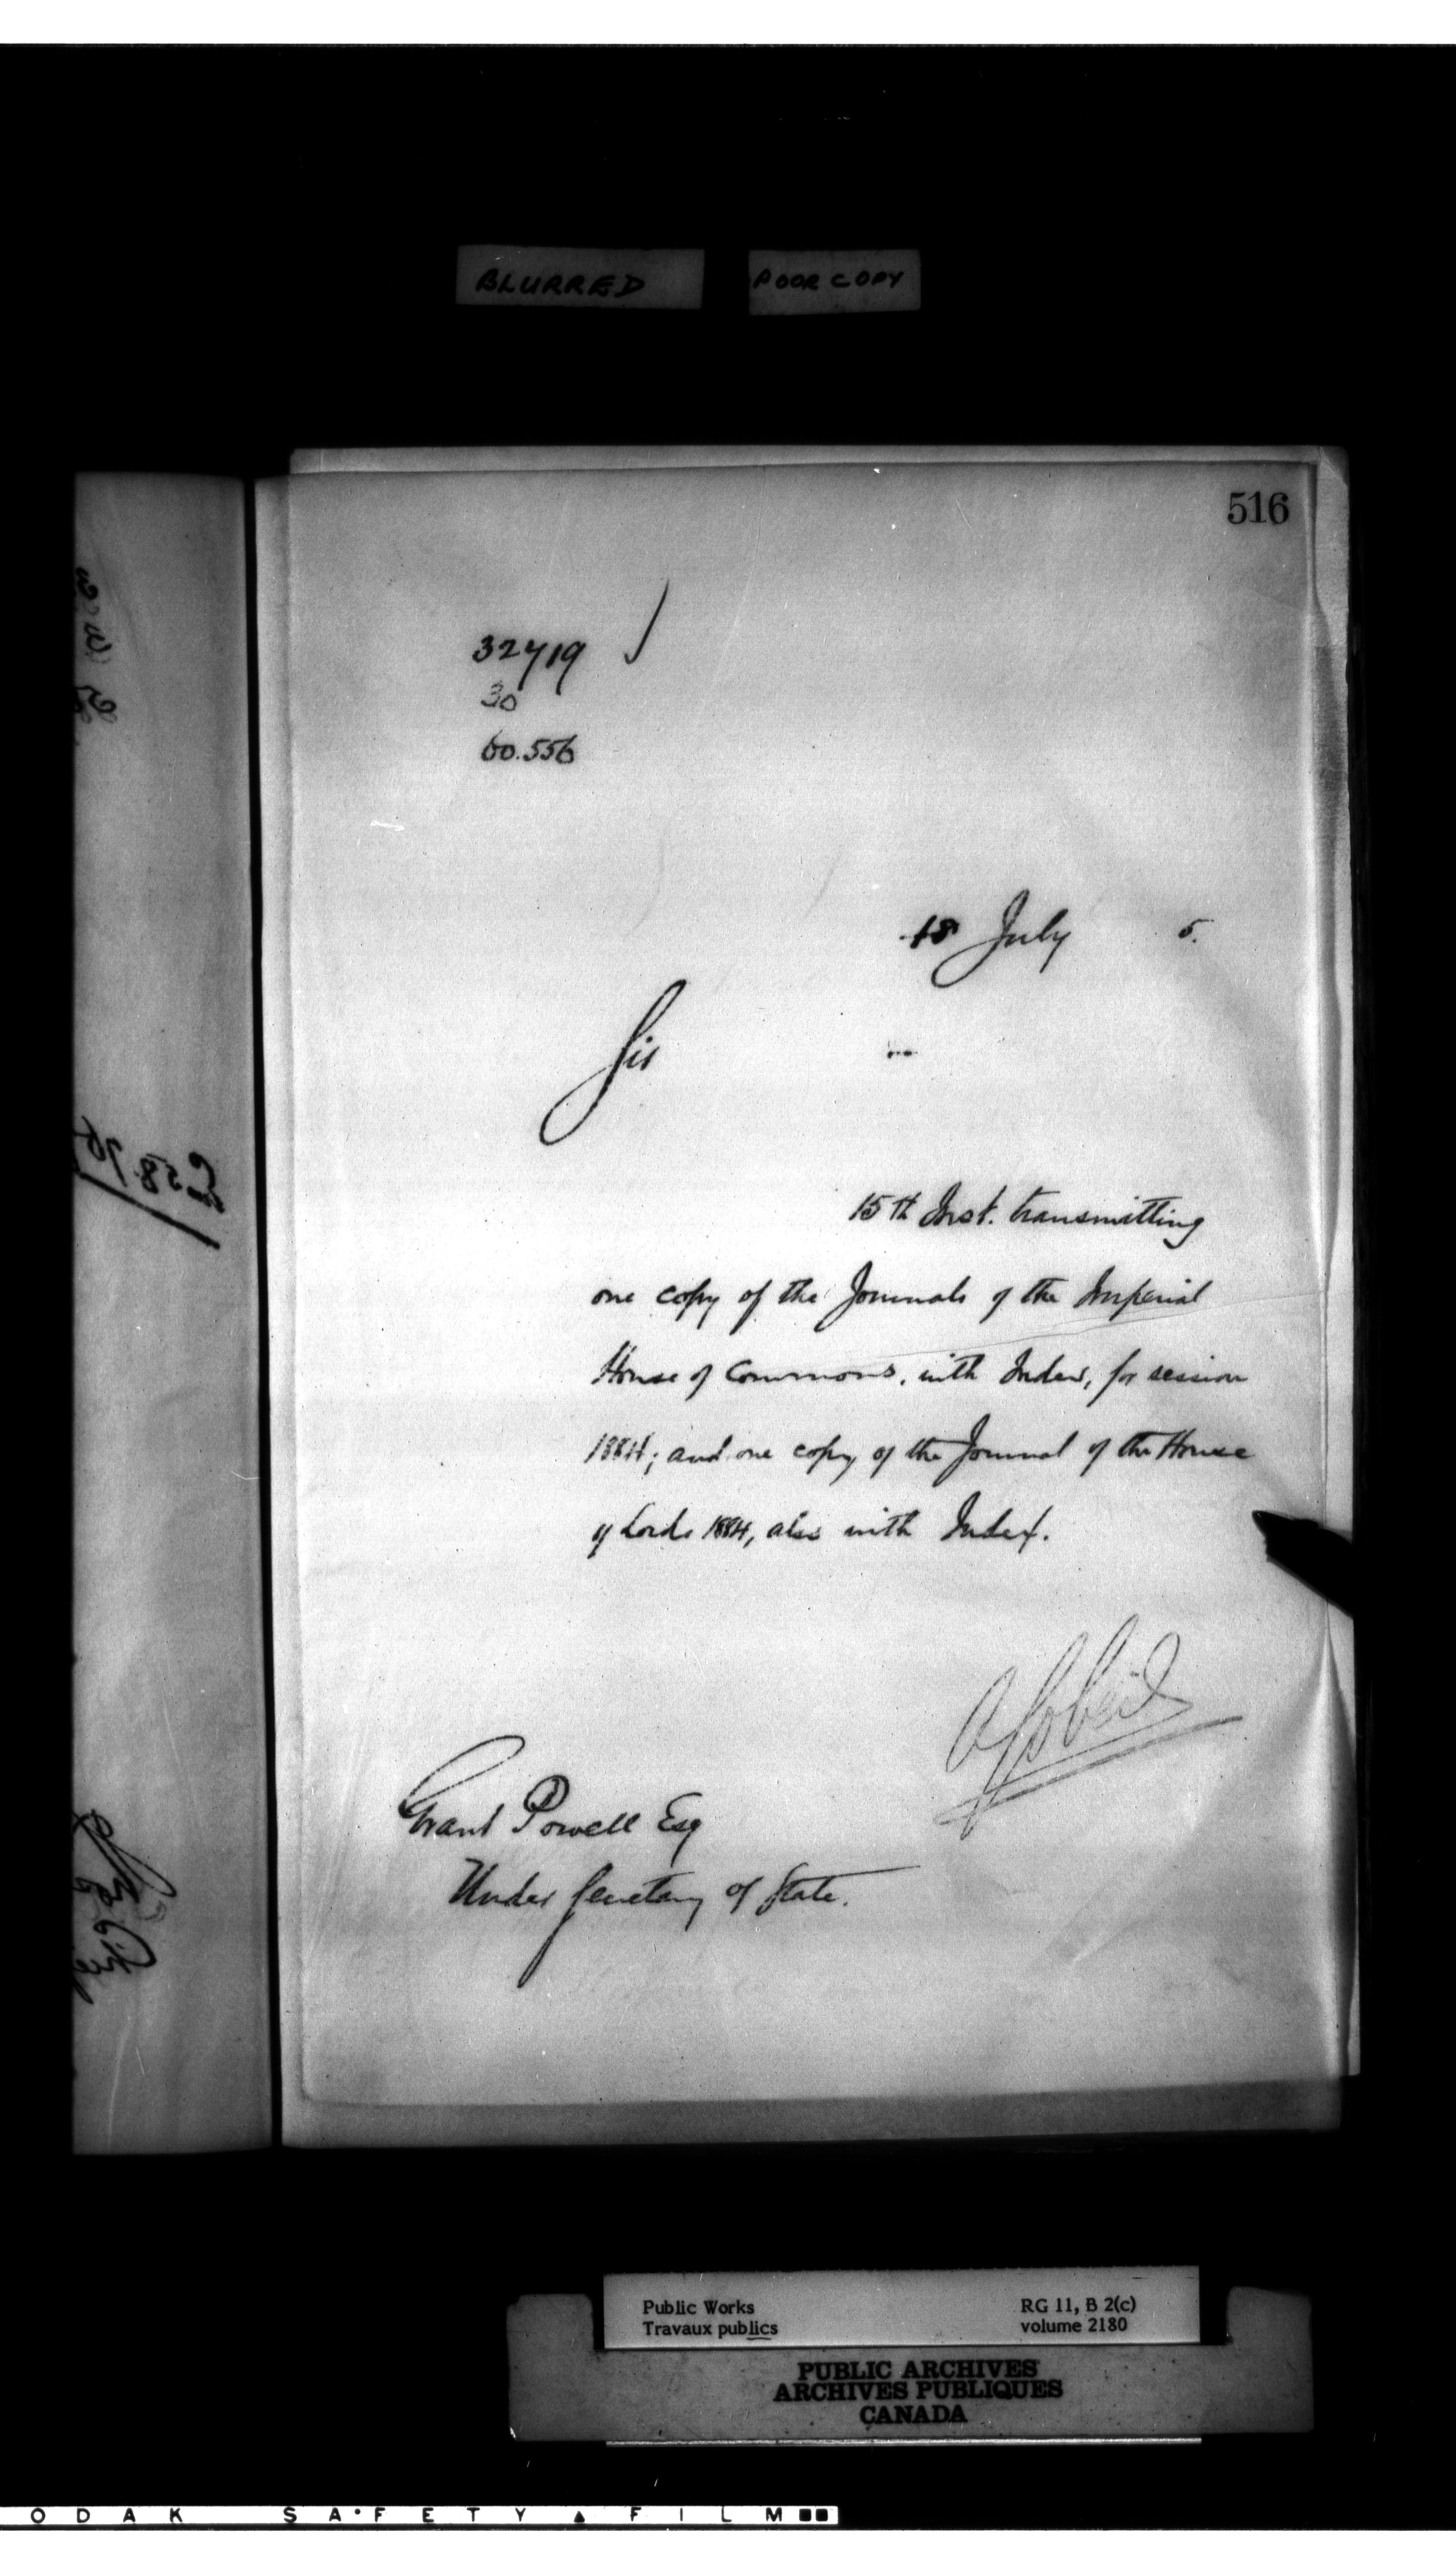 BLURRED POOR COPY
516
32719
30
60.556
18 July 5.
Sir
15th Inst. transmitting
one copy of the Journals of the Imperial
House of Commons, with Index, for session
1884; and one copy of the Journal of the House
of Lords 1884, also with Index.
A Gobeil
Grant Powell Esq
Under Secretary of State.
Public Works RG 11, B 2(c)
Travaux publics volume 2180
PUBLIC ARCHIVES
ARCHIVES PUBLIQUES
CANADA
ODAK SAFETY FILM